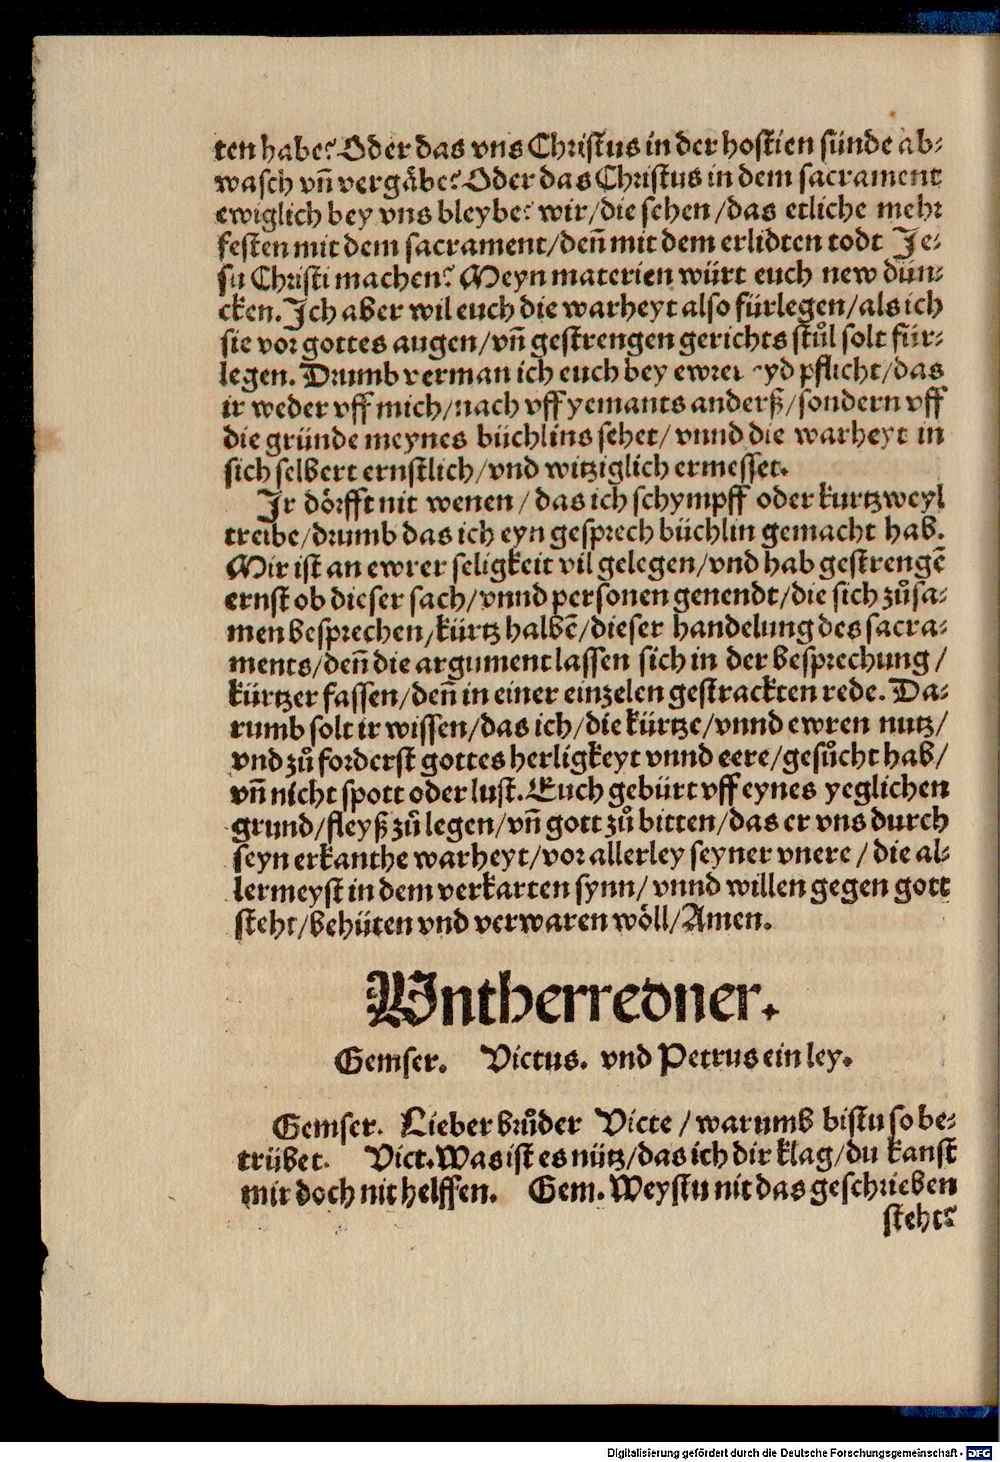 ten habe? Oder das vns Christus in der hostien sünde ab⸗
wasch vñ vergäbe? Oder das Christus in dem sacrament
ewiglich bey vns bleybe? wir/die sehen/das etliche mehr
festen mit dem sacrament/deñ mit dem erlidten todt Je⸗
su Christi machen? Meyn materien würt euch new dün⸗
cken. Ich aber wil euch die warheyt also fürlegen/als ich
sie vor gottes augen/vñ gestrengen gerichts stůl solt für⸗
legen. Drumb verman ich euch bey pflicht/das
ir weder vff mich/nach vff yemants anderß/sondern vff
die gründe meynes büchlins sehet/vnnd die warheyt in
sich selbert ernstlich/vnd witziglich ermesset.
Ir dörfft nit wenen/das ich schympff oder kurtzweyl
treibe/drumb das ich eyn gesprech büchlin gemacht hab.
Mir ist an ewrer seligkeit vil gelegen/vnd hab gestrengē
ernst ob dieser sach/vnnd personen genendt/die sich zůsa⸗
men besprechen/kürtz halbē/dieser handelung des sacra⸗
ments/deñ die argument lassen sich in der besprechung/
kürtzer fassen/deñ in einer einzelen gestrackten rede. Da⸗
rumb solt ir wissen/das ich/die kürtze/vnnd ewren nutz/
vnd zů forderst gottes herligkeyt vnnd eere/gesůcht hab/
vñ nicht spott oder lust. Euch gebürt vff eynes yeglichen
grund/fleyß zů legen/vñ gott zů bitten/das er vns durch
seyn erkanthe warheyt/vor allerley seyner vnere/die al⸗
lermeyst in dem verkarten synn/vnnd willen gegen gott
steht/behüten vnd verwaren wöll/Amen.
Vntherredner.
Gemser. Victus. vnd Petrus ein ley.
Gemser. Lieber brůder Victe/warumb bistu so be⸗
trübet. Vict. Was ist es nütz/das ich dir klag/du kanst
mir doch nit helffen. Gem. Weystu nit das geschrieben
steht?
Digitalisierung gefördert durch die Deutsche Forschungsgemeinschaft - DFG